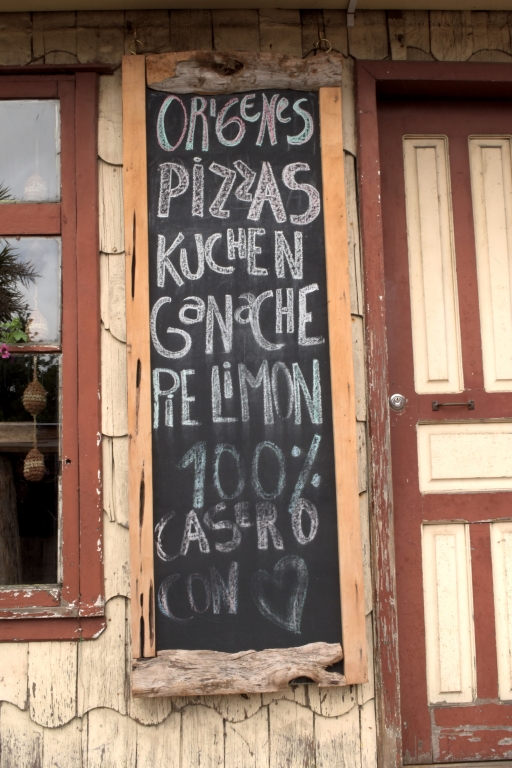 ORiGENeS
PiZZAS
KUCHEN
GaNaCHE
PiE LiMON
100%
CASeRO
CON ♡